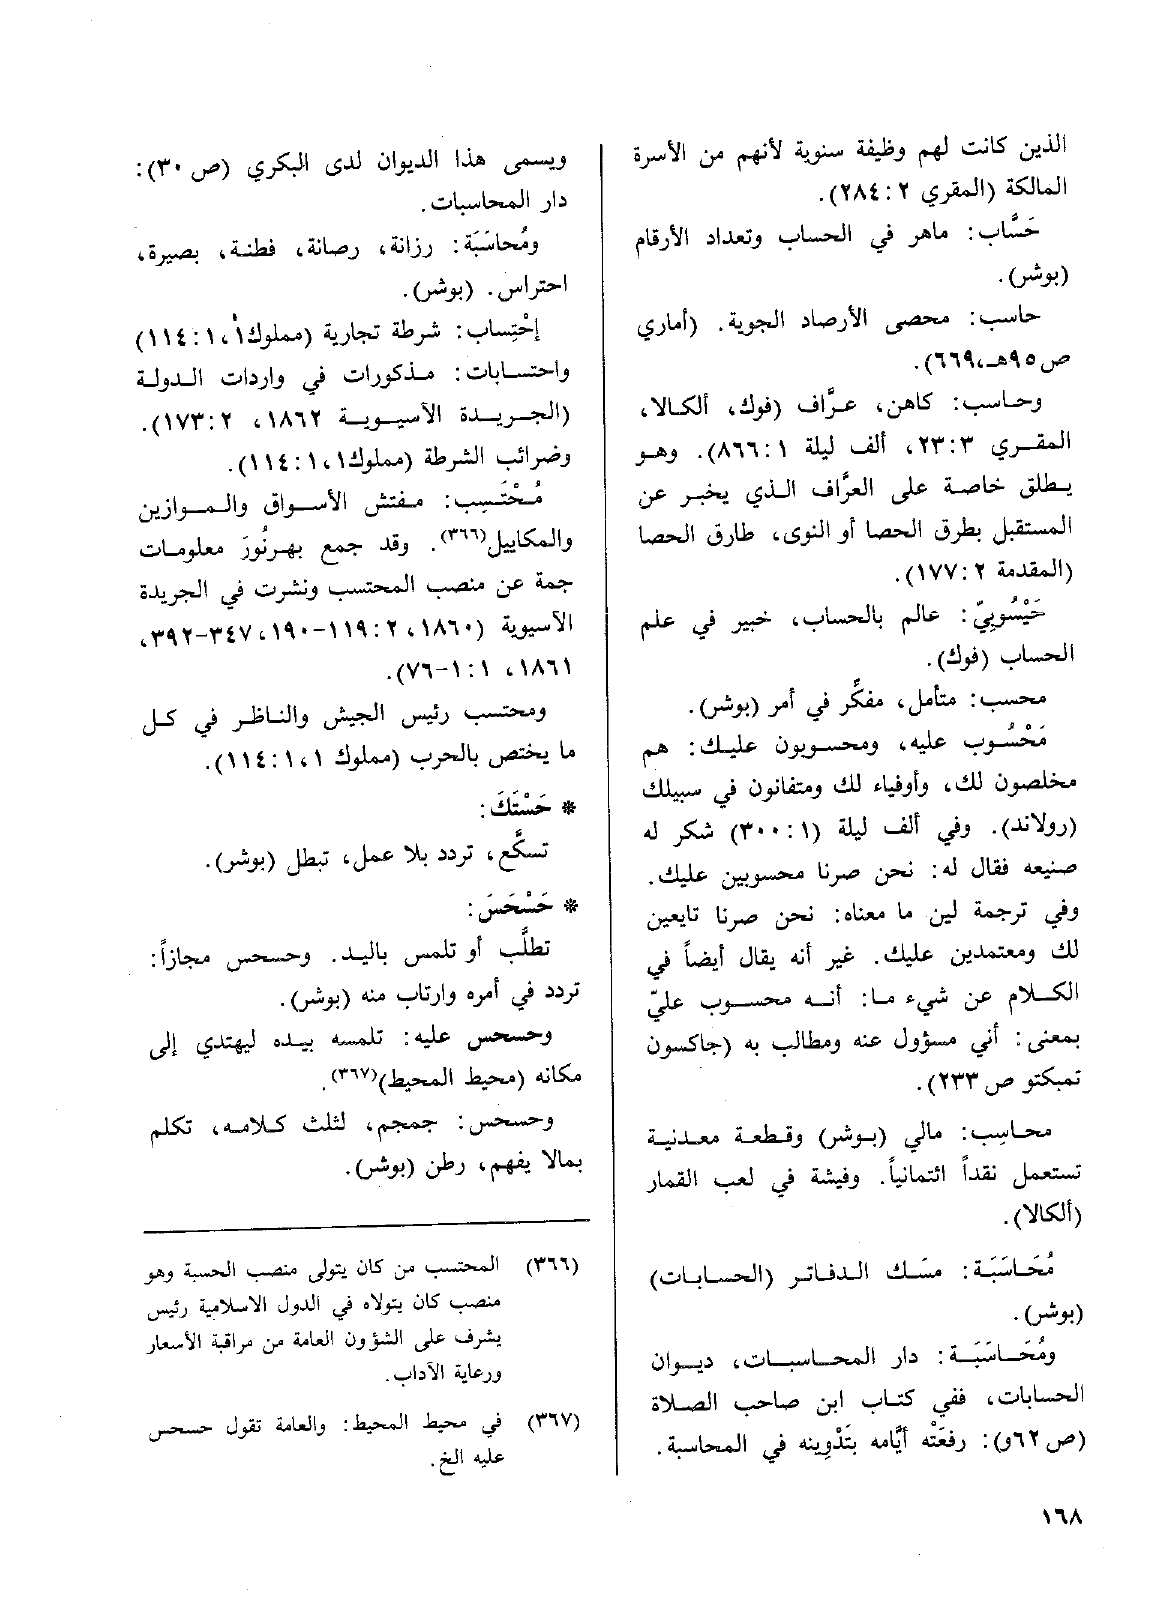 الذين كانت لهم وظيفة سنوية لأنهم من الأسرة
المالكة (المقري ٢ : ٢٨٤).
حَسَّاب: ماهر في الحساب وتعداد الأرقام
(بوشر).
حاسب: محصى الأرصاد الجوية. (أماري
ص٩٥هـ،٦٦٩).
وحاسب: كاهن، عرَّاف (فوك، ألكالا،
المقري ٣:٢٣، ألف ليلة ١ :٨٦٦). وهو
يطلق خاصة على العرَّاف الذي يخبر عن
المستقبل بطرق الحصا أو النوى، طارق الحصا
(المقدمة ٢ :١٧٧).
حَيْسُوبِيّ: عالم بالحساب، خبير في علم
الحساب (فوك).
محسب: متأمل، مفكِّر في أمر (بوشر).
مَحْسُوب عليه، ومحسوبون عليك: هم
مخلصون لك، وأوفياء لك ومتفانون في سبيلك
(رولاند). وفي ألف ليلة (١ :٣٠٠) شكر له
صنيعه فقال له: نحن صرنا محسوبين عليك.
وفي ترجمة لين ما معناه: نحن صرنا تابعين
لك ومعتمدين عليك. غير أنه يقال أيضاً في
الكلام عن شيء ما: أنه محسوب عليّ
بمعنى: أني مسؤول عنه ومطالب به (جاكسون
تمبكتو ص ٢٣٣).
محاسِب: مالي (بوشر) وقطعة معدنية
تستعمل نقداً ائتمانياً. وفيشة في لعب القمار
(ألكالا).
مُحَاسَبَة: مسَك الدفاتر (الحسابات)
(بوشر).
ومُحَاسَبَة: دار المحاسبات، ديوان
الحسابات، ففي كتاب ابن صاحب الصلاة
(ص ٦٢و): رفعَتْه أيَّامه بتَدْوِينه في المحاسبة.
ويسمى هذا الديوان لدى البكري (ص ٣٠):
دار المحاسبات.
ومُحاسَبَة: رزانة، رصانة، فطنة، بصيرة،
احتراس. (بوشر).
إحْتِساب: شرطة تجارية (مملوك١، ١ :١١٤)
واحتسابات: مذكورات في واردات الدولة
(الجريدة الآسيوية ١٨٦٢، ٢ :١٧٣).
وضرائب الشرطة (مملوك١، ١ :١١٤).
مُحْتَسِب: مفتش الأسواق والموازين
والمكاييل(٣٦٦). وقد جمع بهرنُورَ معلومات
جمة عن منصب المحتسب ونشرت في الجريدة
الآسيوية (١٨٦٠، ٢ :١١٩-١٩٠، ٣٤٧-٣٩٢،
١٨٦١، ١ :١-٧٦).
ومحتسب رئيس الجيش والناظر في كل
ما يختص بالحرب (مملوك ١، ١ :١١٤).
* حَسْتَكَ:
تسكَّع، تردد بلا عمل، تبطل (بوشر).
* حَسْحَسَ:
تطلَّب أو تلمس باليد. وحسحس مجازاً:
تردد في أمره وارتاب منه (بوشر).
وحسحس عليه: تلمسه بيده ليهتدي إلى
مكانه (محيط المحيط)(٣٦٧).
وحسحس: جمجم، لثلث كلامه، تكلم
بمالا يفهم، رطن (بوشر).
(٣٦٦) المحتسب من كان يتولى منصب الحسبة وهو
منصب كان يتولاه في الدول الاسلامية رئيس
يشرف على الشؤون العامة من مراقبة الأسعار
ورعاية الآداب.
(٣٦٧) في محيط المحيط: والعامة تقول حسحس
عليه الخ.
١٦٨